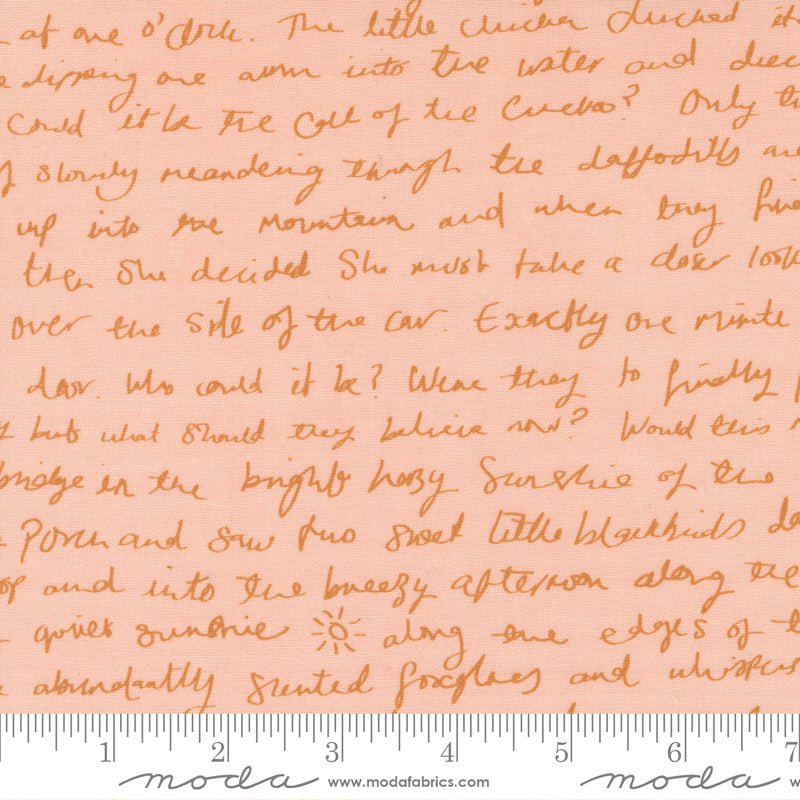 at one o'clock. The little chicken clucked it
dipping one arm into the water and deci
could it be the call of the Cuckoo? Only th
of slowly meandering through the daffodills are
up into the mountain and when they fin
then she decided She must take a closer look
over the side of the car. Exactly one minute
door. Who could it be? Were they to finally
but what should they believe now? Would this
bridge in the bright hazy Sunshine of the
Porch and saw two sweet little blackbirds
and into the breezy afternoon along the
quiet sunshine along the edges of t
abundantly scented foxgloves and whispers
1 2 3 4 5 6 7
moda www.modafabrics.com moda w